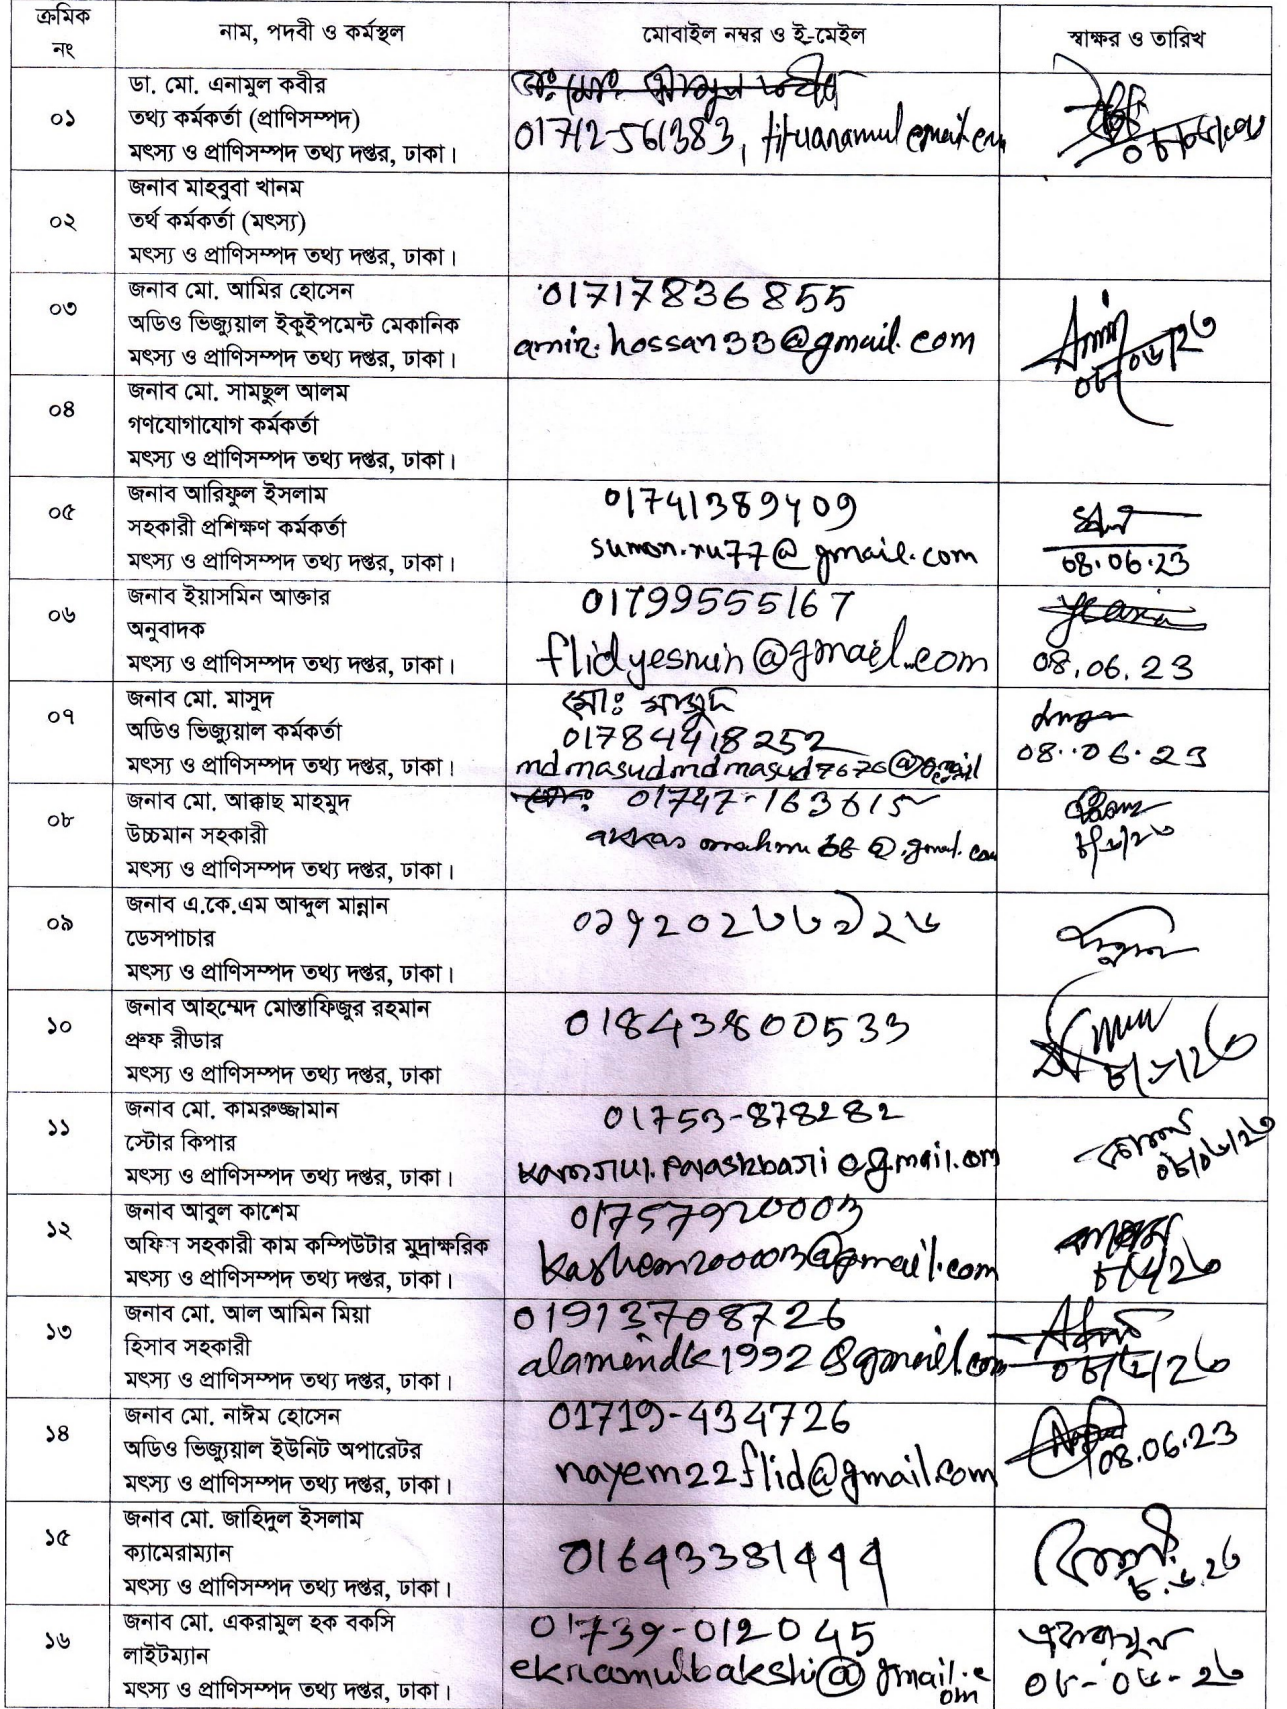 ক্রমিক নং
নাম, পদবী ও কর্মস্থল
মোবাইল নম্বর ও ই-মেইল
স্বাক্ষর ও তারিখ
০১
ডা. মো. এনামুল কবীর
তথ্য কর্মকর্তা (প্রাণিসম্পদ)
মৎস্য ও প্রাণিসম্পদ তথ্য দপ্তর, ঢাকা।
01712-561383,
০২
জনাব মাহবুবা খানম
তর্থ কর্মকর্তা (মৎস্য)
মৎস্য ও প্রাণিসম্পদ তথ্য দপ্তর, ঢাকা।
০৩
জনাব মো. আমির হোসেন
অডিও ভিজ্যুয়াল ইকুইপমেন্ট মেকানিক
মৎস্য ও প্রাণিসম্পদ তথ্য দপ্তর, ঢাকা।
01717836855
amir.hossan33@gmail.com
০৮/০৬/২৩
০৪
জনাব মো. সামছুল আলম
গণযোগাযোগ কর্মকর্তা
মৎস্য ও প্রাণিসম্পদ তথ্য দপ্তর, ঢাকা।
০৫
জনাব আরিফুল ইসলাম
সহকারী প্রশিক্ষণ কর্মকর্তা
মৎস্য ও প্রাণিসম্পদ তথ্য দপ্তর, ঢাকা।
sumon.ru77@gmail.com
08.06.23
০৬
জনাব ইয়াসমিন আক্তার
অনুবাদক
মৎস্য ও প্রাণিসম্পদ তথ্য দপ্তর, ঢাকা।
01799555167
flidyesmin@gmail.com
08.06.23
০৭
জনাব মো. মাসুদ
অডিও ভিজ্যুয়াল কর্মকর্তা
মৎস্য ও প্রাণিসম্পদ তথ্য দপ্তর, ঢাকা।
মোঃ মাসুদ
01784418252
08.06.23
০৮
জনাব মো. আক্কাছ মাহমুদ
উচ্চমান সহকারী
মৎস্য ও প্রাণিসম্পদ তথ্য দপ্তর, ঢাকা।
01747-163615
৮/৬/২৩
০৯
জনাব এ.কে.এম আব্দুল মান্নান
ডেসপাচার
মৎস্য ও প্রাণিসম্পদ তথ্য দপ্তর, ঢাকা।
১০
জনাব আহম্মেদ মোস্তাফিজুর রহমান
প্রুফ রীডার
মৎস্য ও প্রাণিসম্পদ তথ্য দপ্তর, ঢাকা
01843800533
৮/৬/২৩
১১
জনাব মো. কামরুজ্জামান
স্টোর কিপার
মৎস্য ও প্রাণিসম্পদ তথ্য দপ্তর, ঢাকা।
01753-878282
০৮/০৬/২৩
১২
জনাব আবুল কাশেম
অফিস সহকারী কাম কম্পিউটার মুদ্রাক্ষরিক
মৎস্য ও প্রাণিসম্পদ তথ্য দপ্তর, ঢাকা।
01757920003
kashem20003@gmail.com
৮/৬/২৩
১৩
জনাব মো. আল আমিন মিয়া
হিসাব সহকারী
মৎস্য ও প্রাণিসম্পদ তথ্য দপ্তর, ঢাকা।
01913708726
alamendk1992@gmail.com
০৮/৬/২৩
১৪
জনাব মো. নাঈম হোসেন
অডিও ভিজ্যুয়াল ইউনিট অপারেটর
মৎস্য ও প্রাণিসম্পদ তথ্য দপ্তর, ঢাকা।
01719-434726
nayem22flid@gmail.com
08.06.23
১৫
জনাব মো. জাহিদুল ইসলাম
ক্যামেরাম্যান
মৎস্য ও প্রাণিসম্পদ তথ্য দপ্তর, ঢাকা।
01643381444
৮.৬.২৩
১৬
জনাব মো. একরামুল হক বকসি
লাইটম্যান
মৎস্য ও প্রাণিসম্পদ তথ্য দপ্তর, ঢাকা।
01739-012045
ekramulbakshi@gmail.com
একরামুল
০৮-০৬-২৩